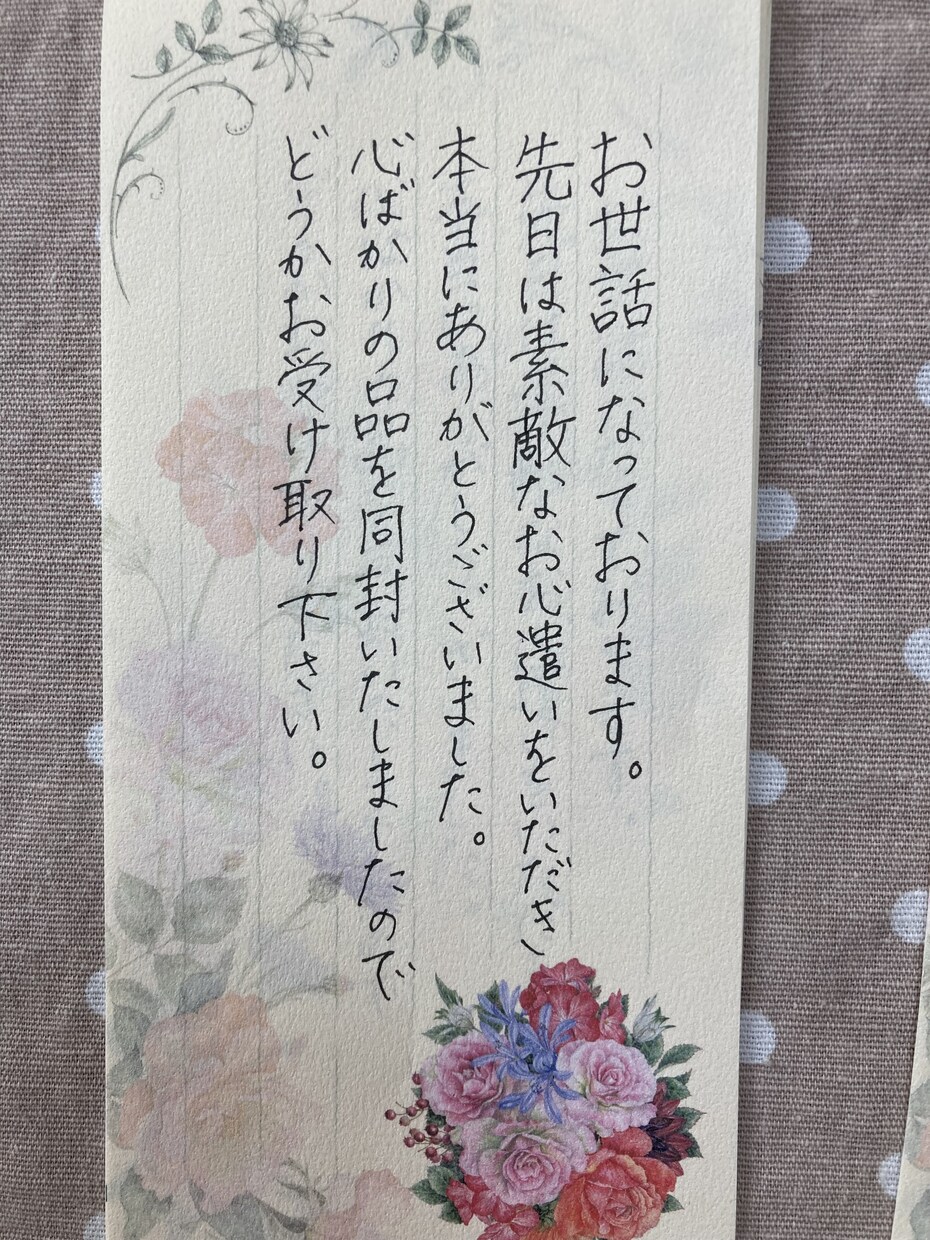 お世話になっております。
先日は素敵なお心遣いをいただき
本当にありがとうございました。
心ばかりの品を同封いたしましたので
どうかお受け取り下さい。